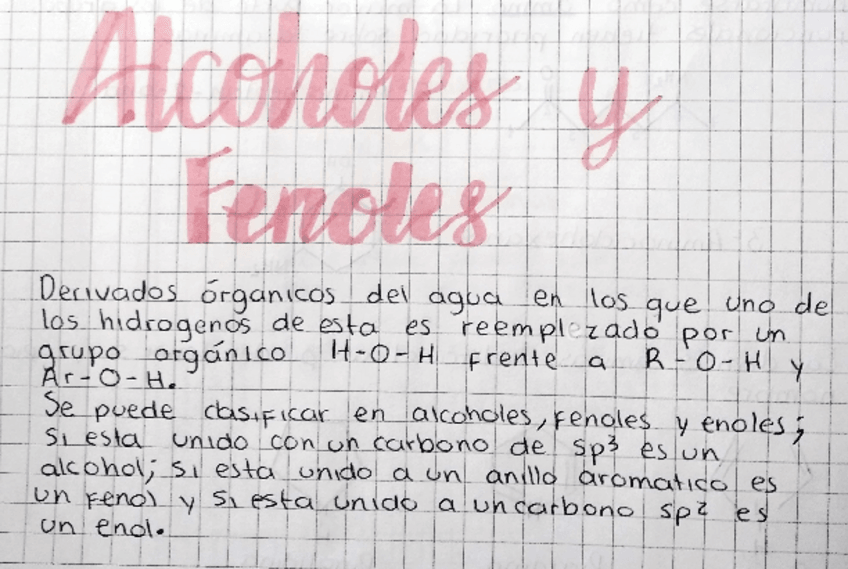 Alcoholes y
Fenoles
Derivados órganicos del agua en los que uno de
los hidrogenos de esta es reemplezado por un
grupo orgánico H-O-H frente a R-O-H y
Ar-O-H.
Se puede clasificar en alcoholes, fenoles y enoles;
si esta unido con un carbono de sp³ es un
alcohol; si esta unido a un anillo aromatico es
un fenol y si esta unido a un carbono sp² es
un enol.